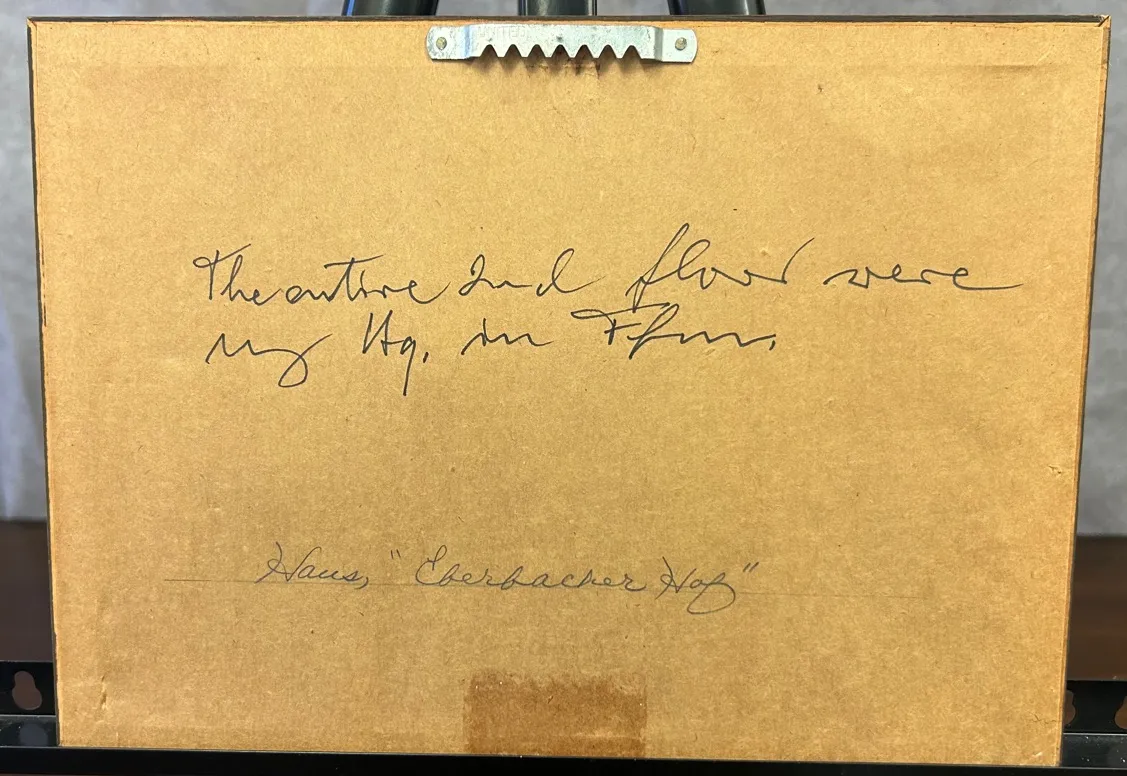 The entire 2nd floor were
my Hq. in Ffm.
Haus, "Eberbacher Hof"